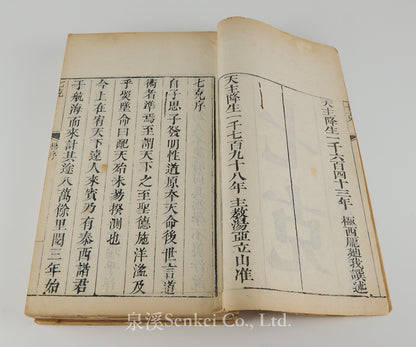 七克
天主降生一千六百四十三年 極西龐廸我譔述
天主降生一千七百九十八年 主教湯亞立山准
七克序
自子思子發明性道原本天命後世言道
術者準焉至謂天下之至聖德施洋溢及
乎墜命曰配天殆未易揆測也
今上在宥天下遠人來賓乃有泰西諸君
子航海而來計其途八萬餘里閱三年始
七克 序
泉溪Senkei Co., Ltd.